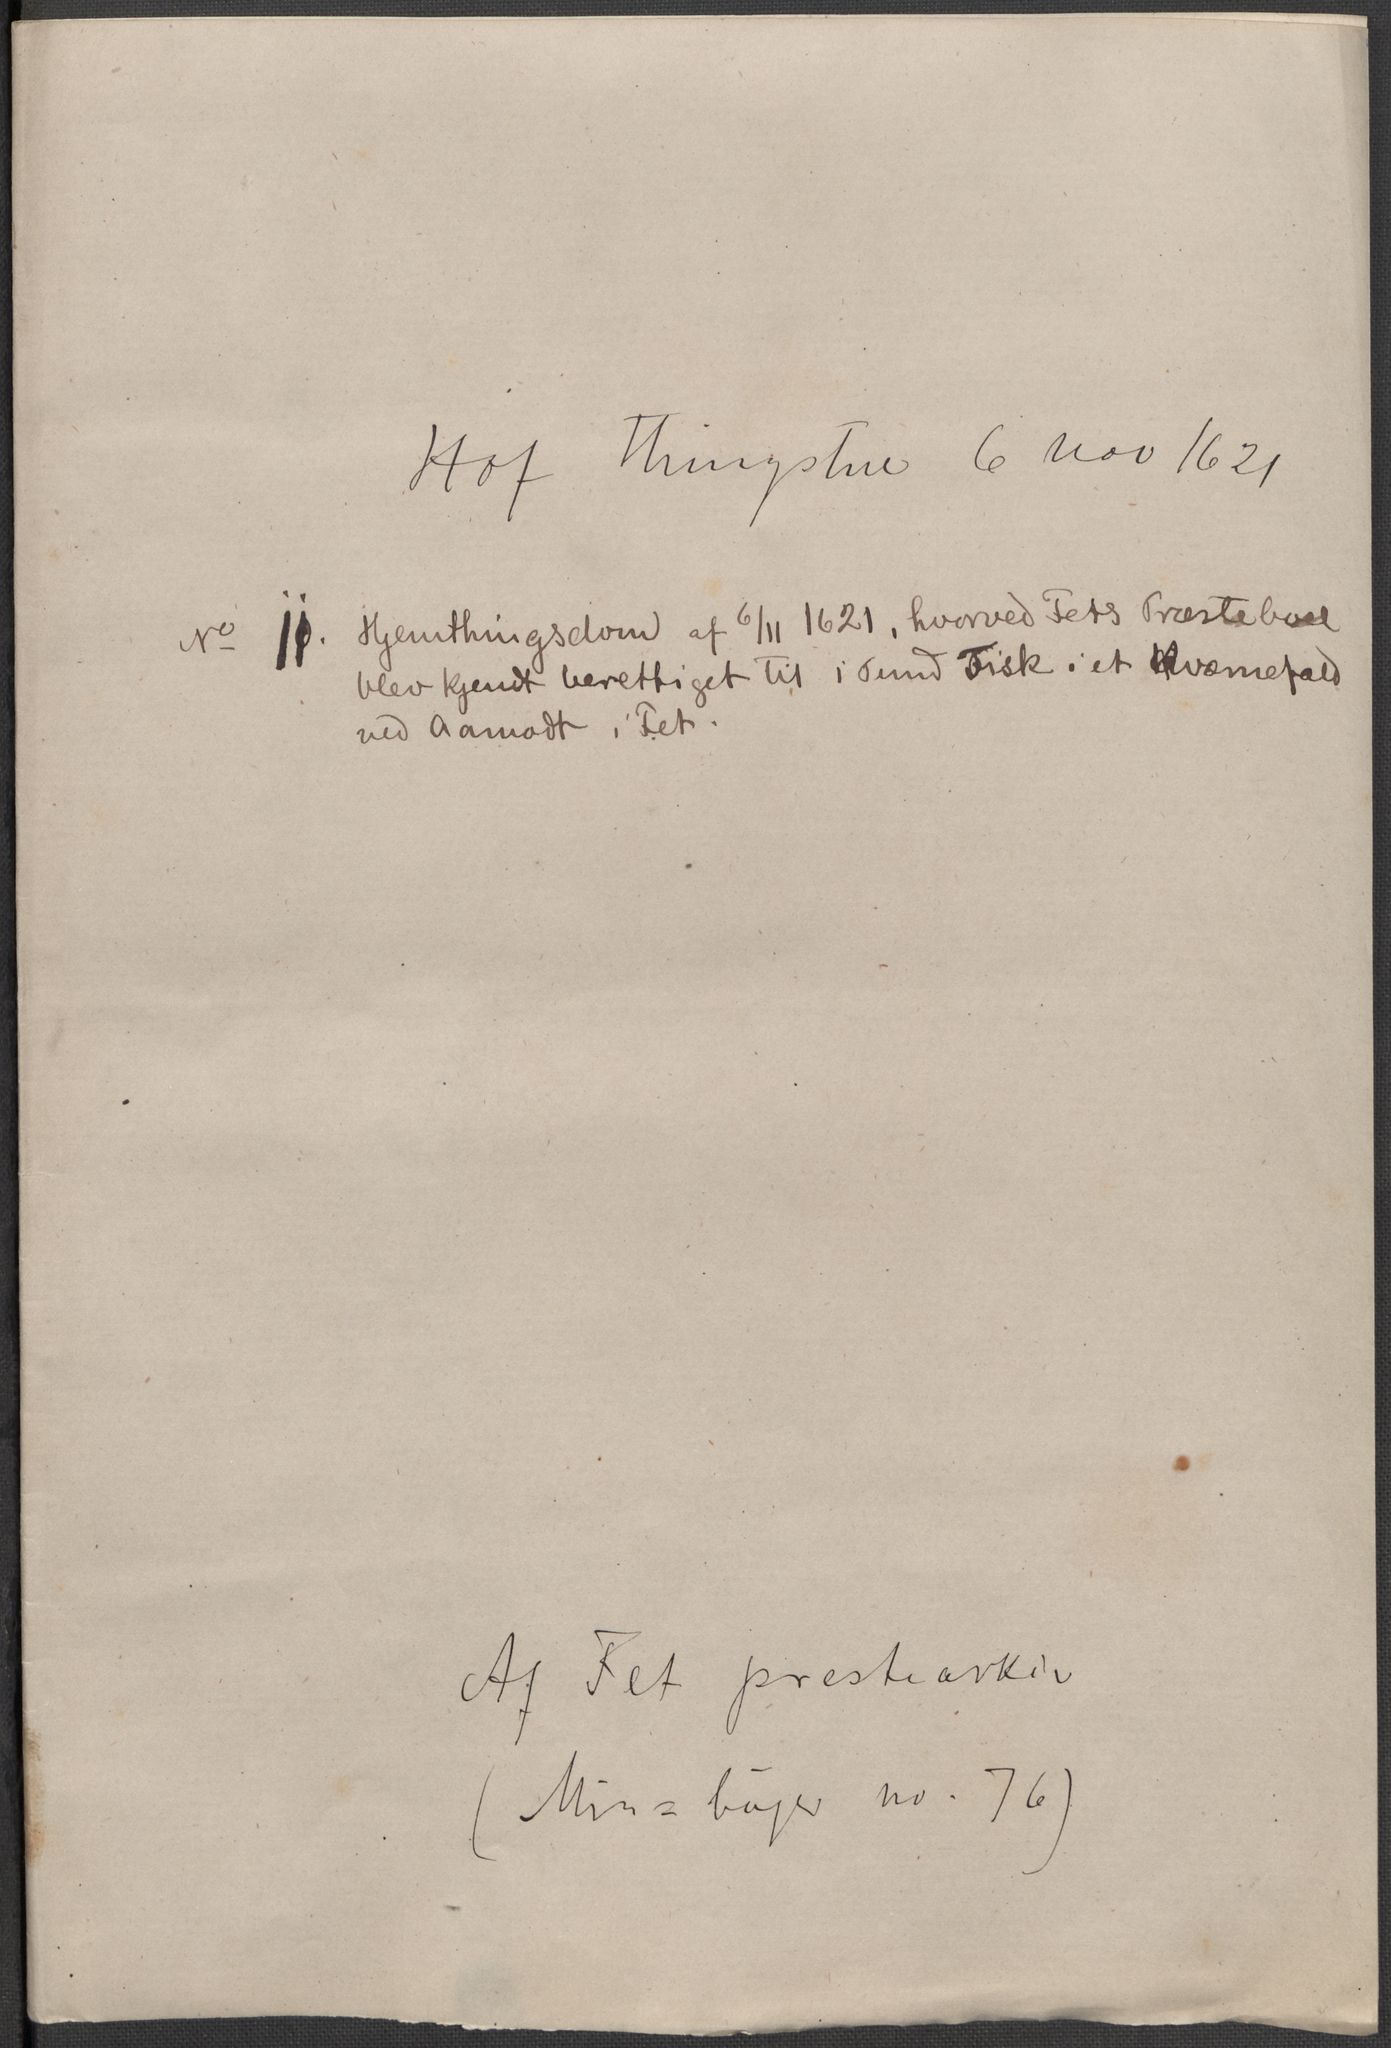 Hof Thingstue 6 nov 1621
No 11. Hjemthingsdom af 6/11 1621, hvorved Fets Præsteboel
blev kjendt berettiget til 1 Pund Fisk i et Kværnefald
ved Aamodt i Fet.
Af Fet prestearkiv
(Min= bøger no. 76)